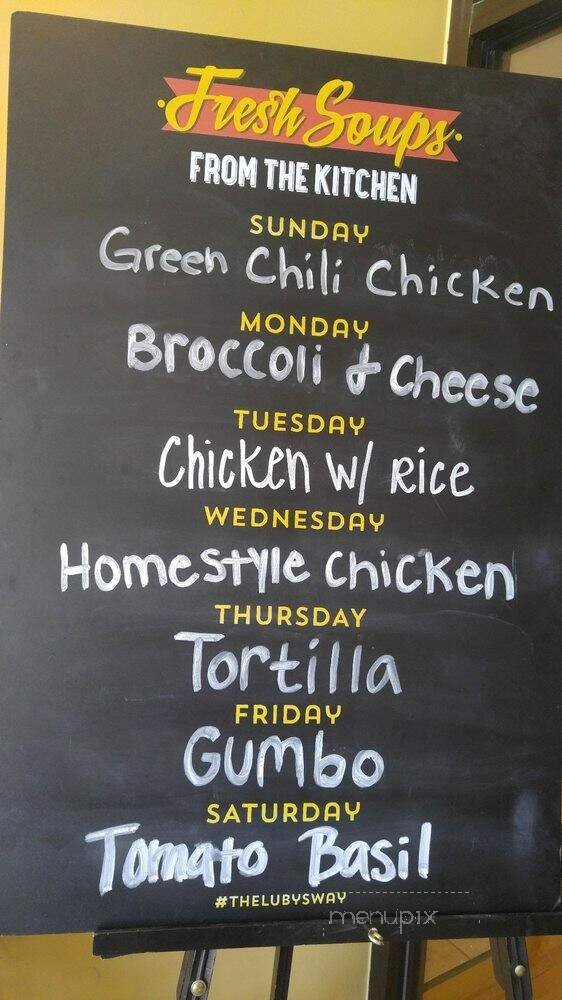 Fresh Soups
FROM THE KITCHEN
SUNDAY
Green Chili Chicken
MONDAY
Broccoli & Cheese
TUESDAY
Chicken w/ Rice
WEDNESDAY
Homestyle Chicken
THURSDAY
Tortilla
FRIDAY
Gumbo
SATURDAY
Tomato Basil
#THELUBYSWAY
menupix